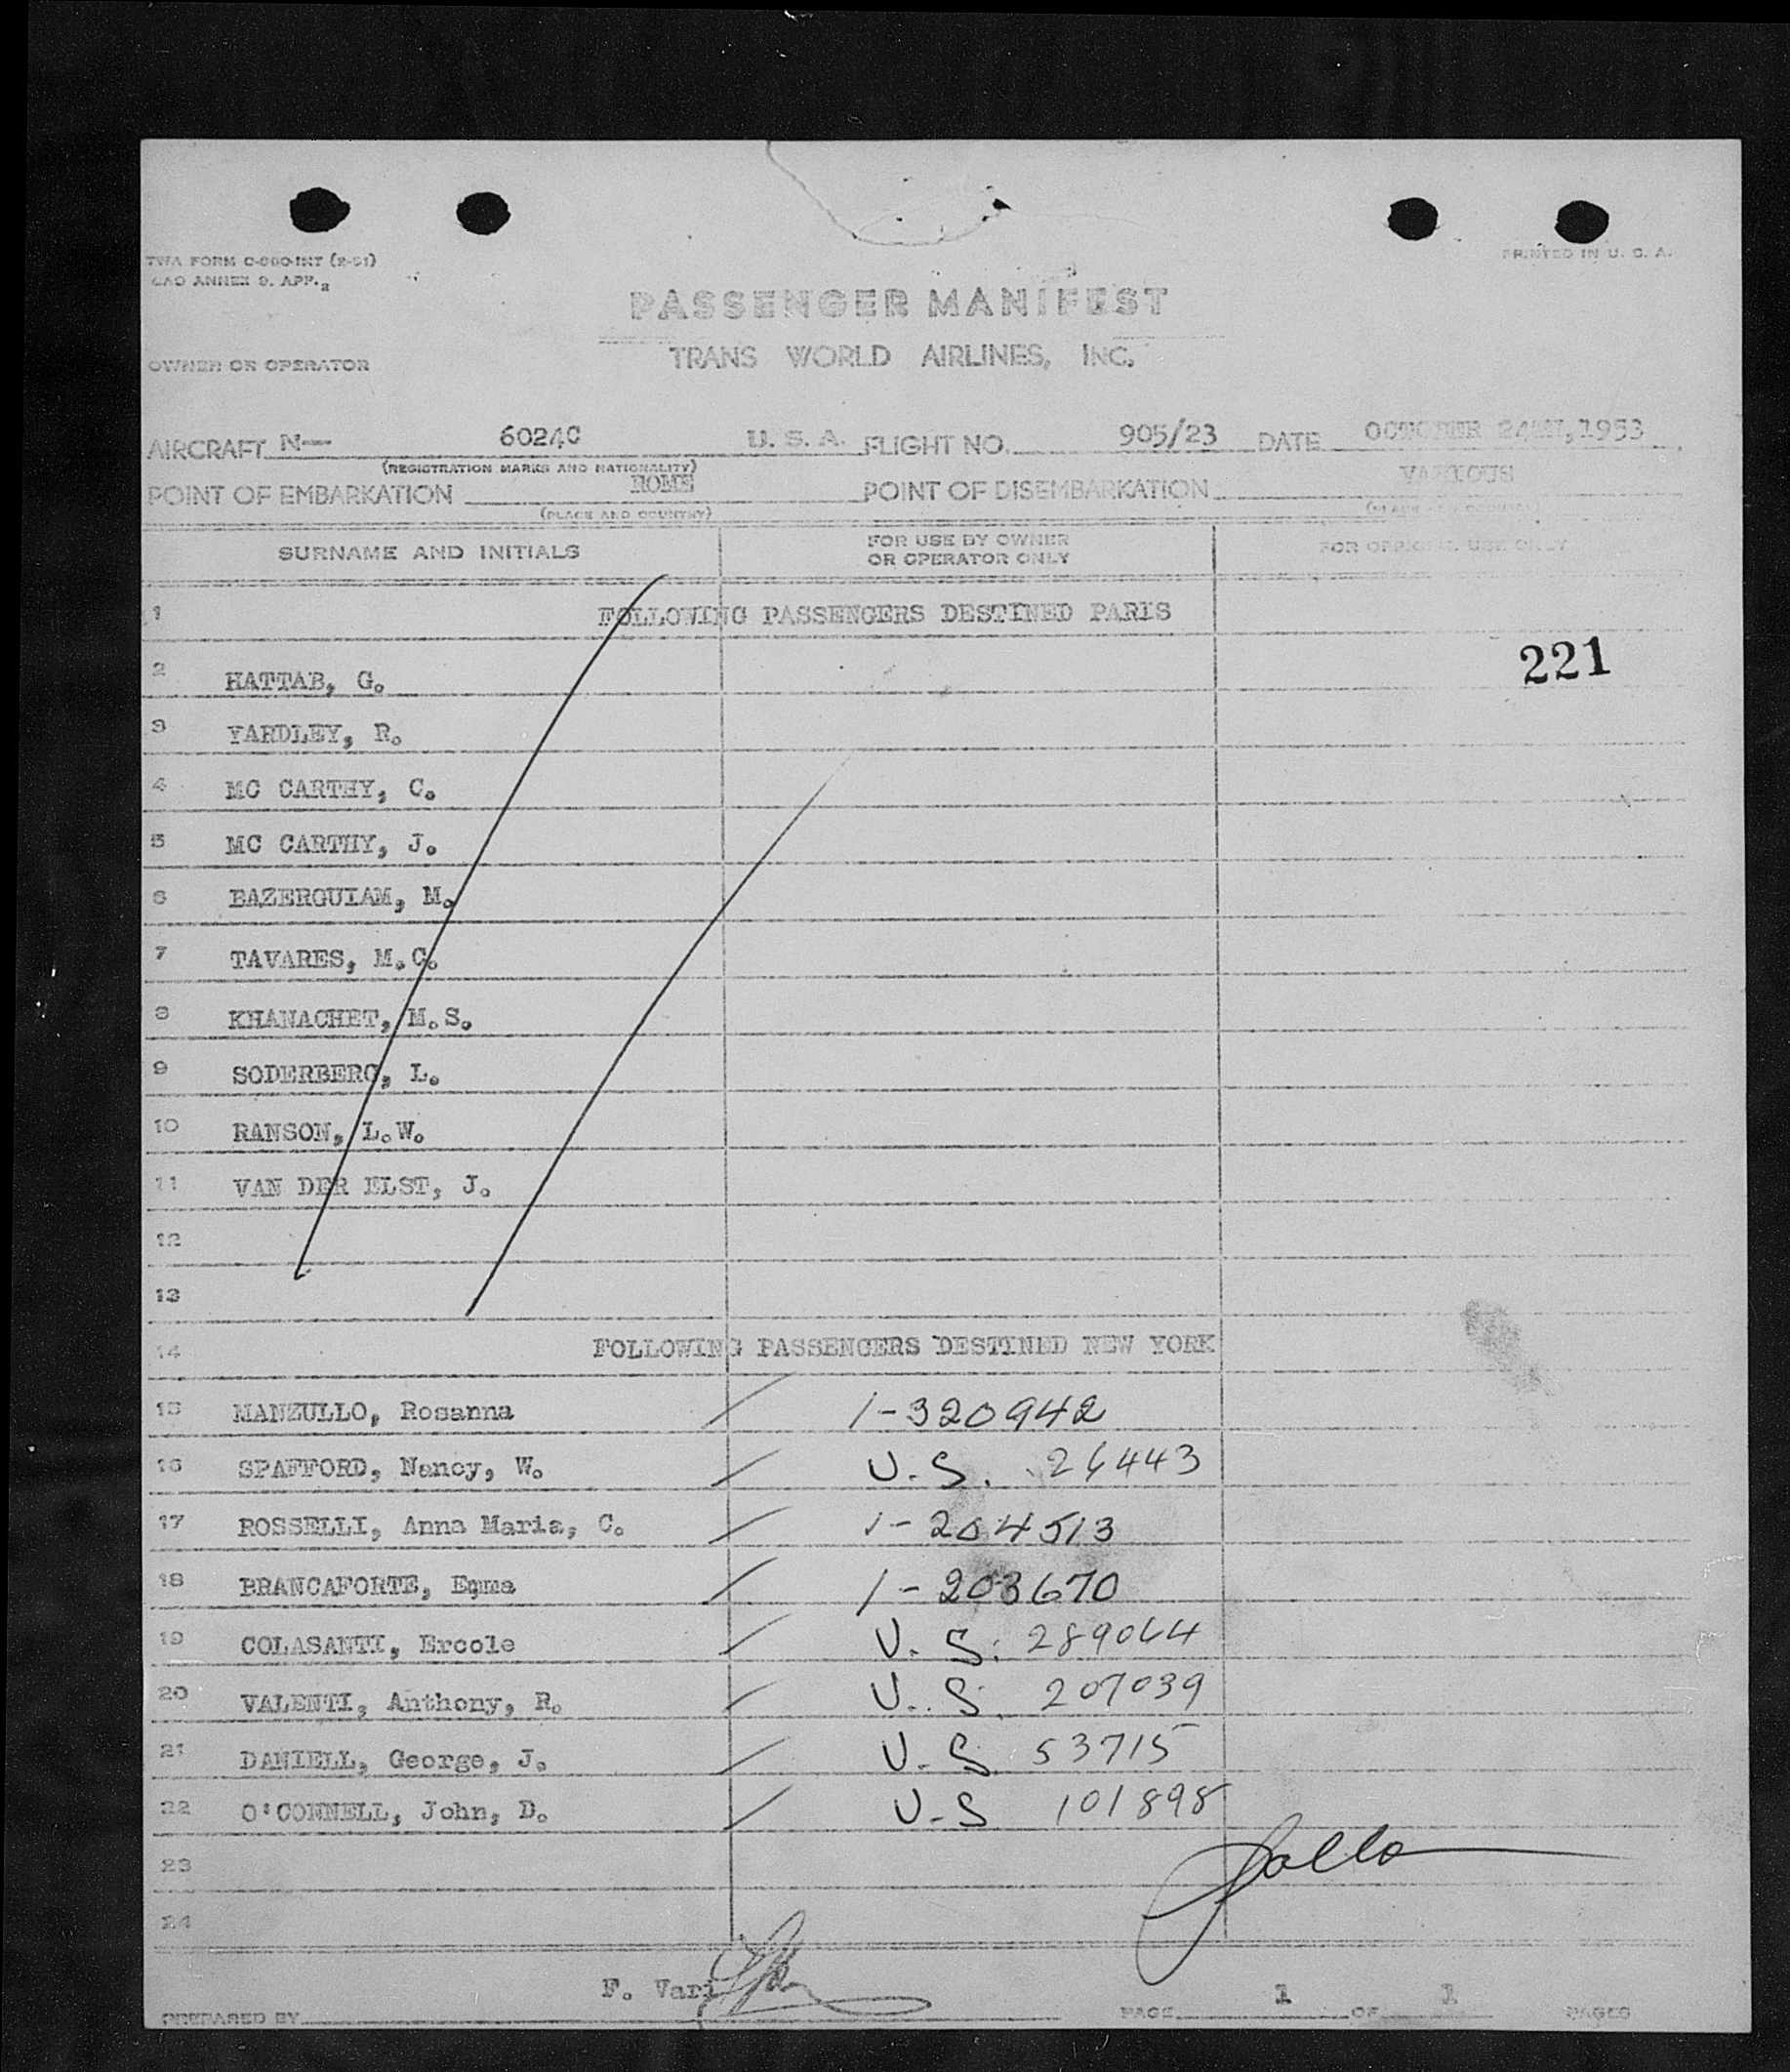 TWA FORM C-900-INT (2-51)
CAO ANNEX 9. APP. 2
PRINTED IN U. S. A.
PASSENGER MANIFEST
OWNER OR OPERATOR
TRANS WORLD AIRLINES, INC.
AIRCRAFT N— 6024C U. S. A. FLIGHT NO. 905/23 DATE OCTOBER 24TH, 1953
(REGISTRATION MARKS AND NATIONALITY)
POINT OF EMBARKATION ROME POINT OF DISEMBARKATION VARIOUS
(PLACE AND COUNTRY) (PLACE AND COUNTRY)
SURNAME AND INITIALS FOR USE BY OWNER OR OPERATOR ONLY FOR OFFICIAL USE ONLY
1 FOLLOWING PASSENGERS DESTINED PARIS
221
2 HATTAB, G.
3 YARDLEY, R.
4 MC CARTHY, C.
5 MC CARTHY, J.
6 BAZERGUIAM, M.
7 TAVARES, M.C.
8 KHANACHET, M.S.
9 SODERBERG, L.
10 RANSON, L.W.
11 VAN DER ELST, J.
12
13
14 FOLLOWING PASSENGERS DESTINED NEW YORK
15 MANZULLO, Rosanna / 1-320942
16 SPAFFORD, Nancy, W. / U.S. 26443
17 ROSSELLI, Anna Maria, C. / 1-204513
18 BRANCAFORTE, Emma / 1-203670
19 COLASANTI, Ercole / U.S. 289064
20 VALENTI, Anthony, R. / U.S. 207039
21 DANIELL, George, J. / U.S 53715
22 O'CONNELL, John, D. / U-S 101898
23
24
F. Vari
PREPARED BY PAGE 1 OF 1 PAGES